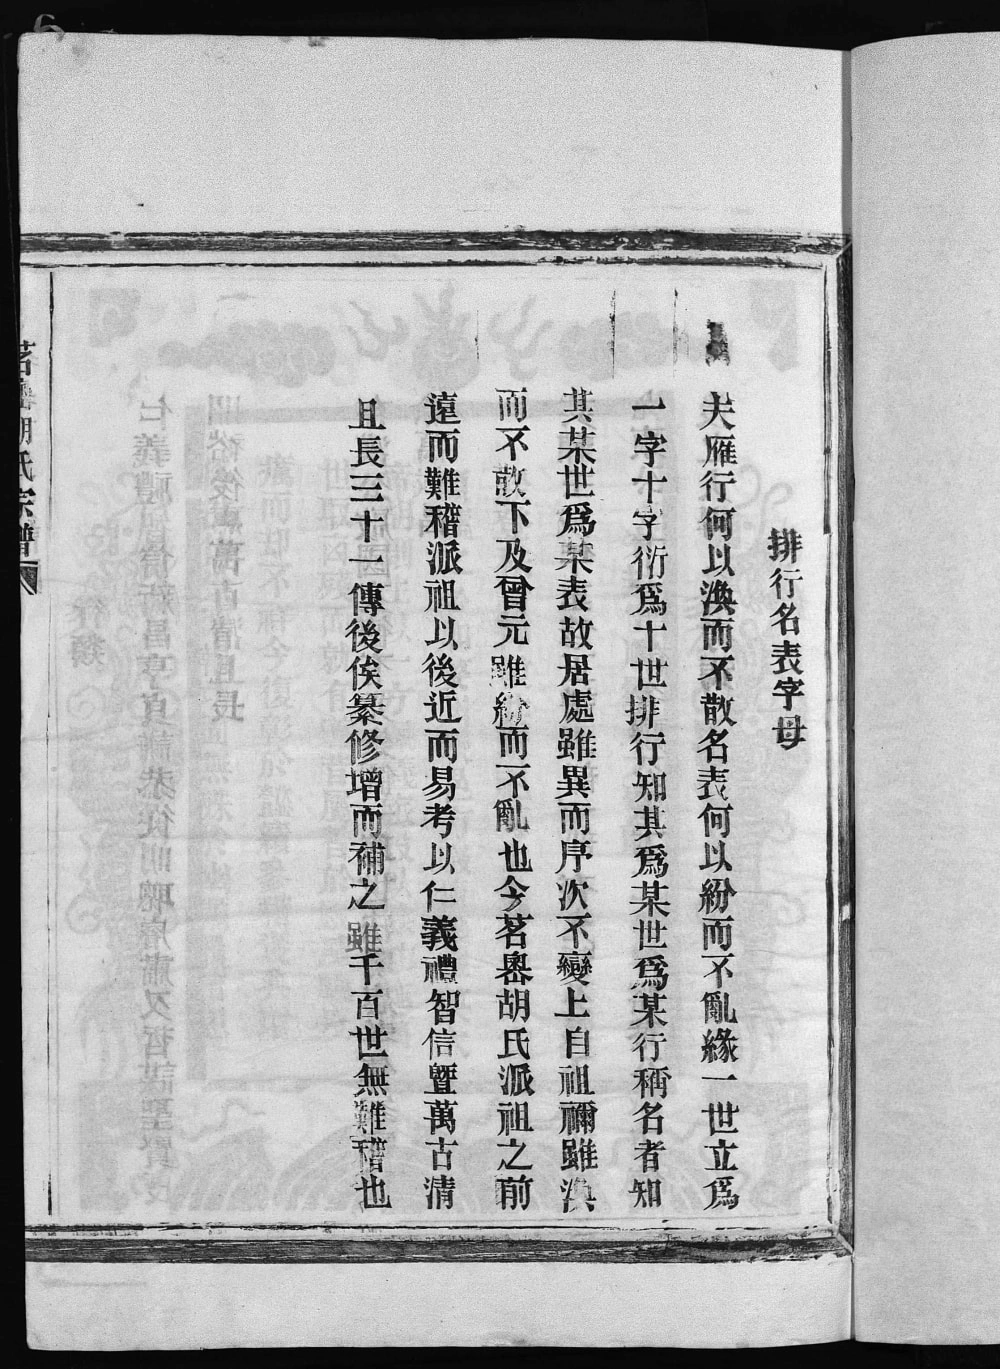 排行名表字母
夫雁行何以渙而不散名表何以紛而不亂緣一世立爲
一字十字衍爲十世排行知其爲某世爲某行稱名者知
其某世爲某表故居處雖異而序次不變上自祖禰雖渙
而不散下及曾元雖紛而不亂也今茗嶴胡氏派祖之前
遠而難稽派祖以後近而易考以仁義禮智信暨萬古清
且長三十一傳後俟纂修增而補之雖千百世無難稽也
茗嶴胡氏宗譜